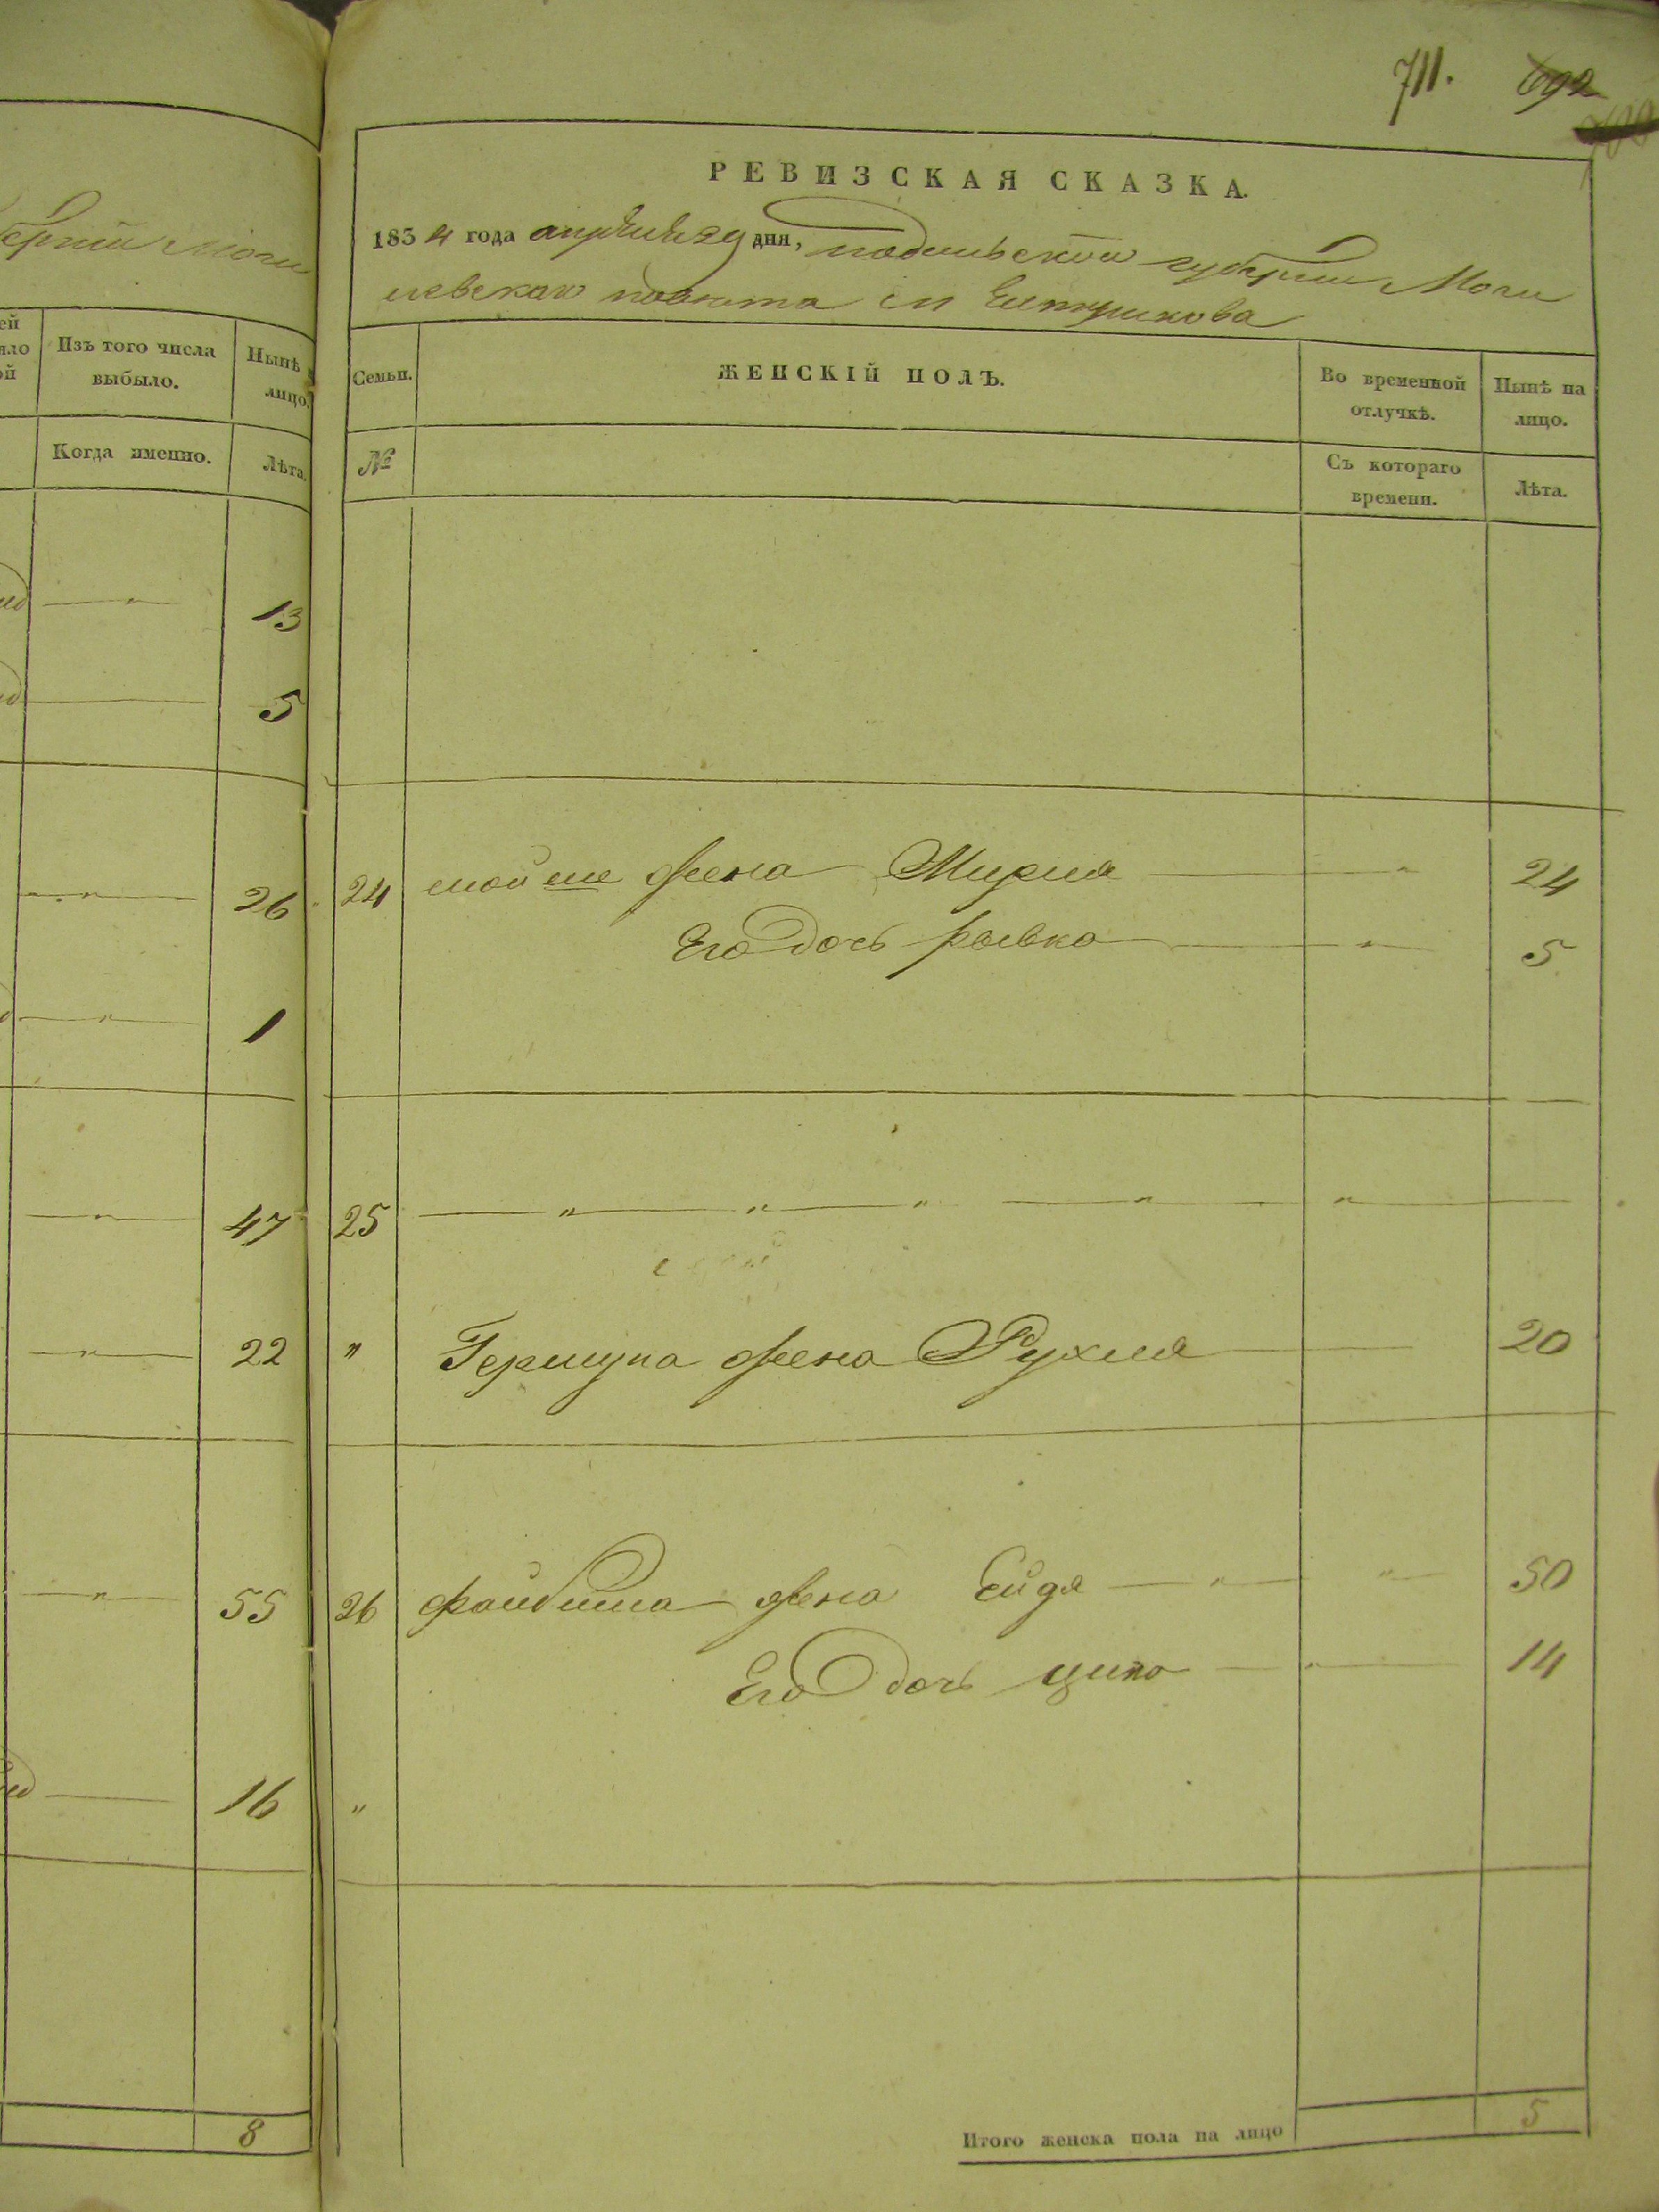 711. 692
РЕВИЗСКАЯ СКАЗКА.
1834 года апреля 29 дня, подольской губернии Моги
левскаго повета
губернии Моги
Изъ того числа
выбыло.
Нынѣ
лицо.
Когда именно.
Лѣта.
13
5
26
1
47
22
55
16
8
Семьи.
ЖЕНСКІЙ ПОЛЪ.
Во временной
отлучкѣ.
Нынѣ на
лицо.
№
Съ котораго
времени.
Лѣта.
24 мойше жена Мирля 24
Его дочь 5
25 " " " " "
" Гершупа жена Рухля 20
26 файбиша жена Ейдя " " 50
Его дочь ципа " 14
"
Итого женска пола на лицо 5